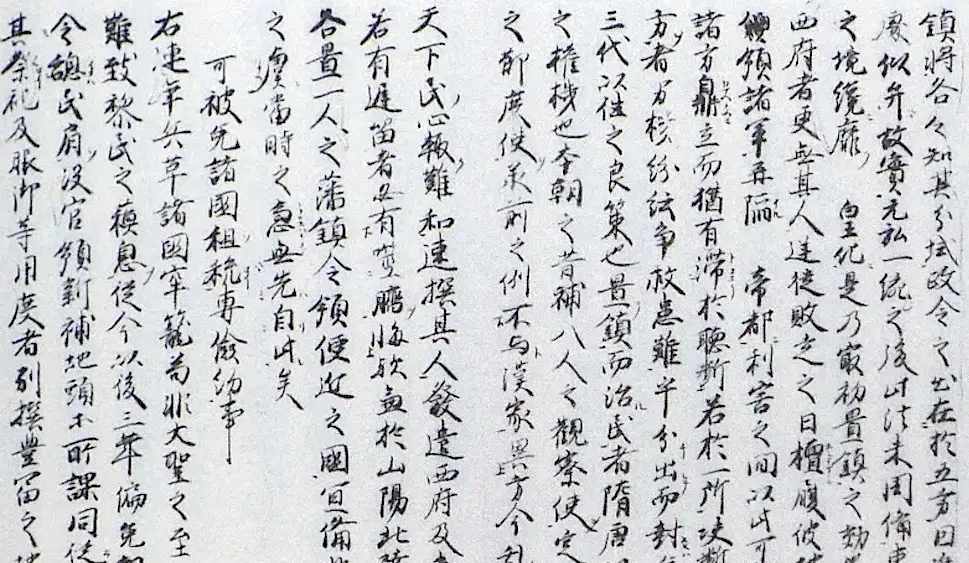 鎮将各々知其分域政令之出在於五方因准
處似弁故實元弘一統之後此法未周備東
之境纔靡　皇化是乃最初置鎮之効
西府者更無其人逆徒敗走之日擅履彼地
領諸軍再陥　帝都利害之間以此可
諸方鼎立而猶有滞於聴断若於一所决断
方者万機紛紜争救患難乎分出而封
三代以往之良策也置鎮而治民者隋唐
之権機也本朝之昔補八人之觀察使定
之節度使承前之例不与漢家異方今乱
天下民心輙難和速撰其人發遣西府及
若有遅留者必有噬臍悔欤兼於山陽北陸
各置一人之藩鎮令領便近之國宜備
之虞當時之急無先自此矣
可被免諸國租税專儉約事
右連年兵革諸國牢籠苟非大聖之至
難致黎民之蘓息従今以後三年偏免租
令憩民肩没官領新補地頭等所課同従
其祭祀及服御等用度者別撰豊富之地